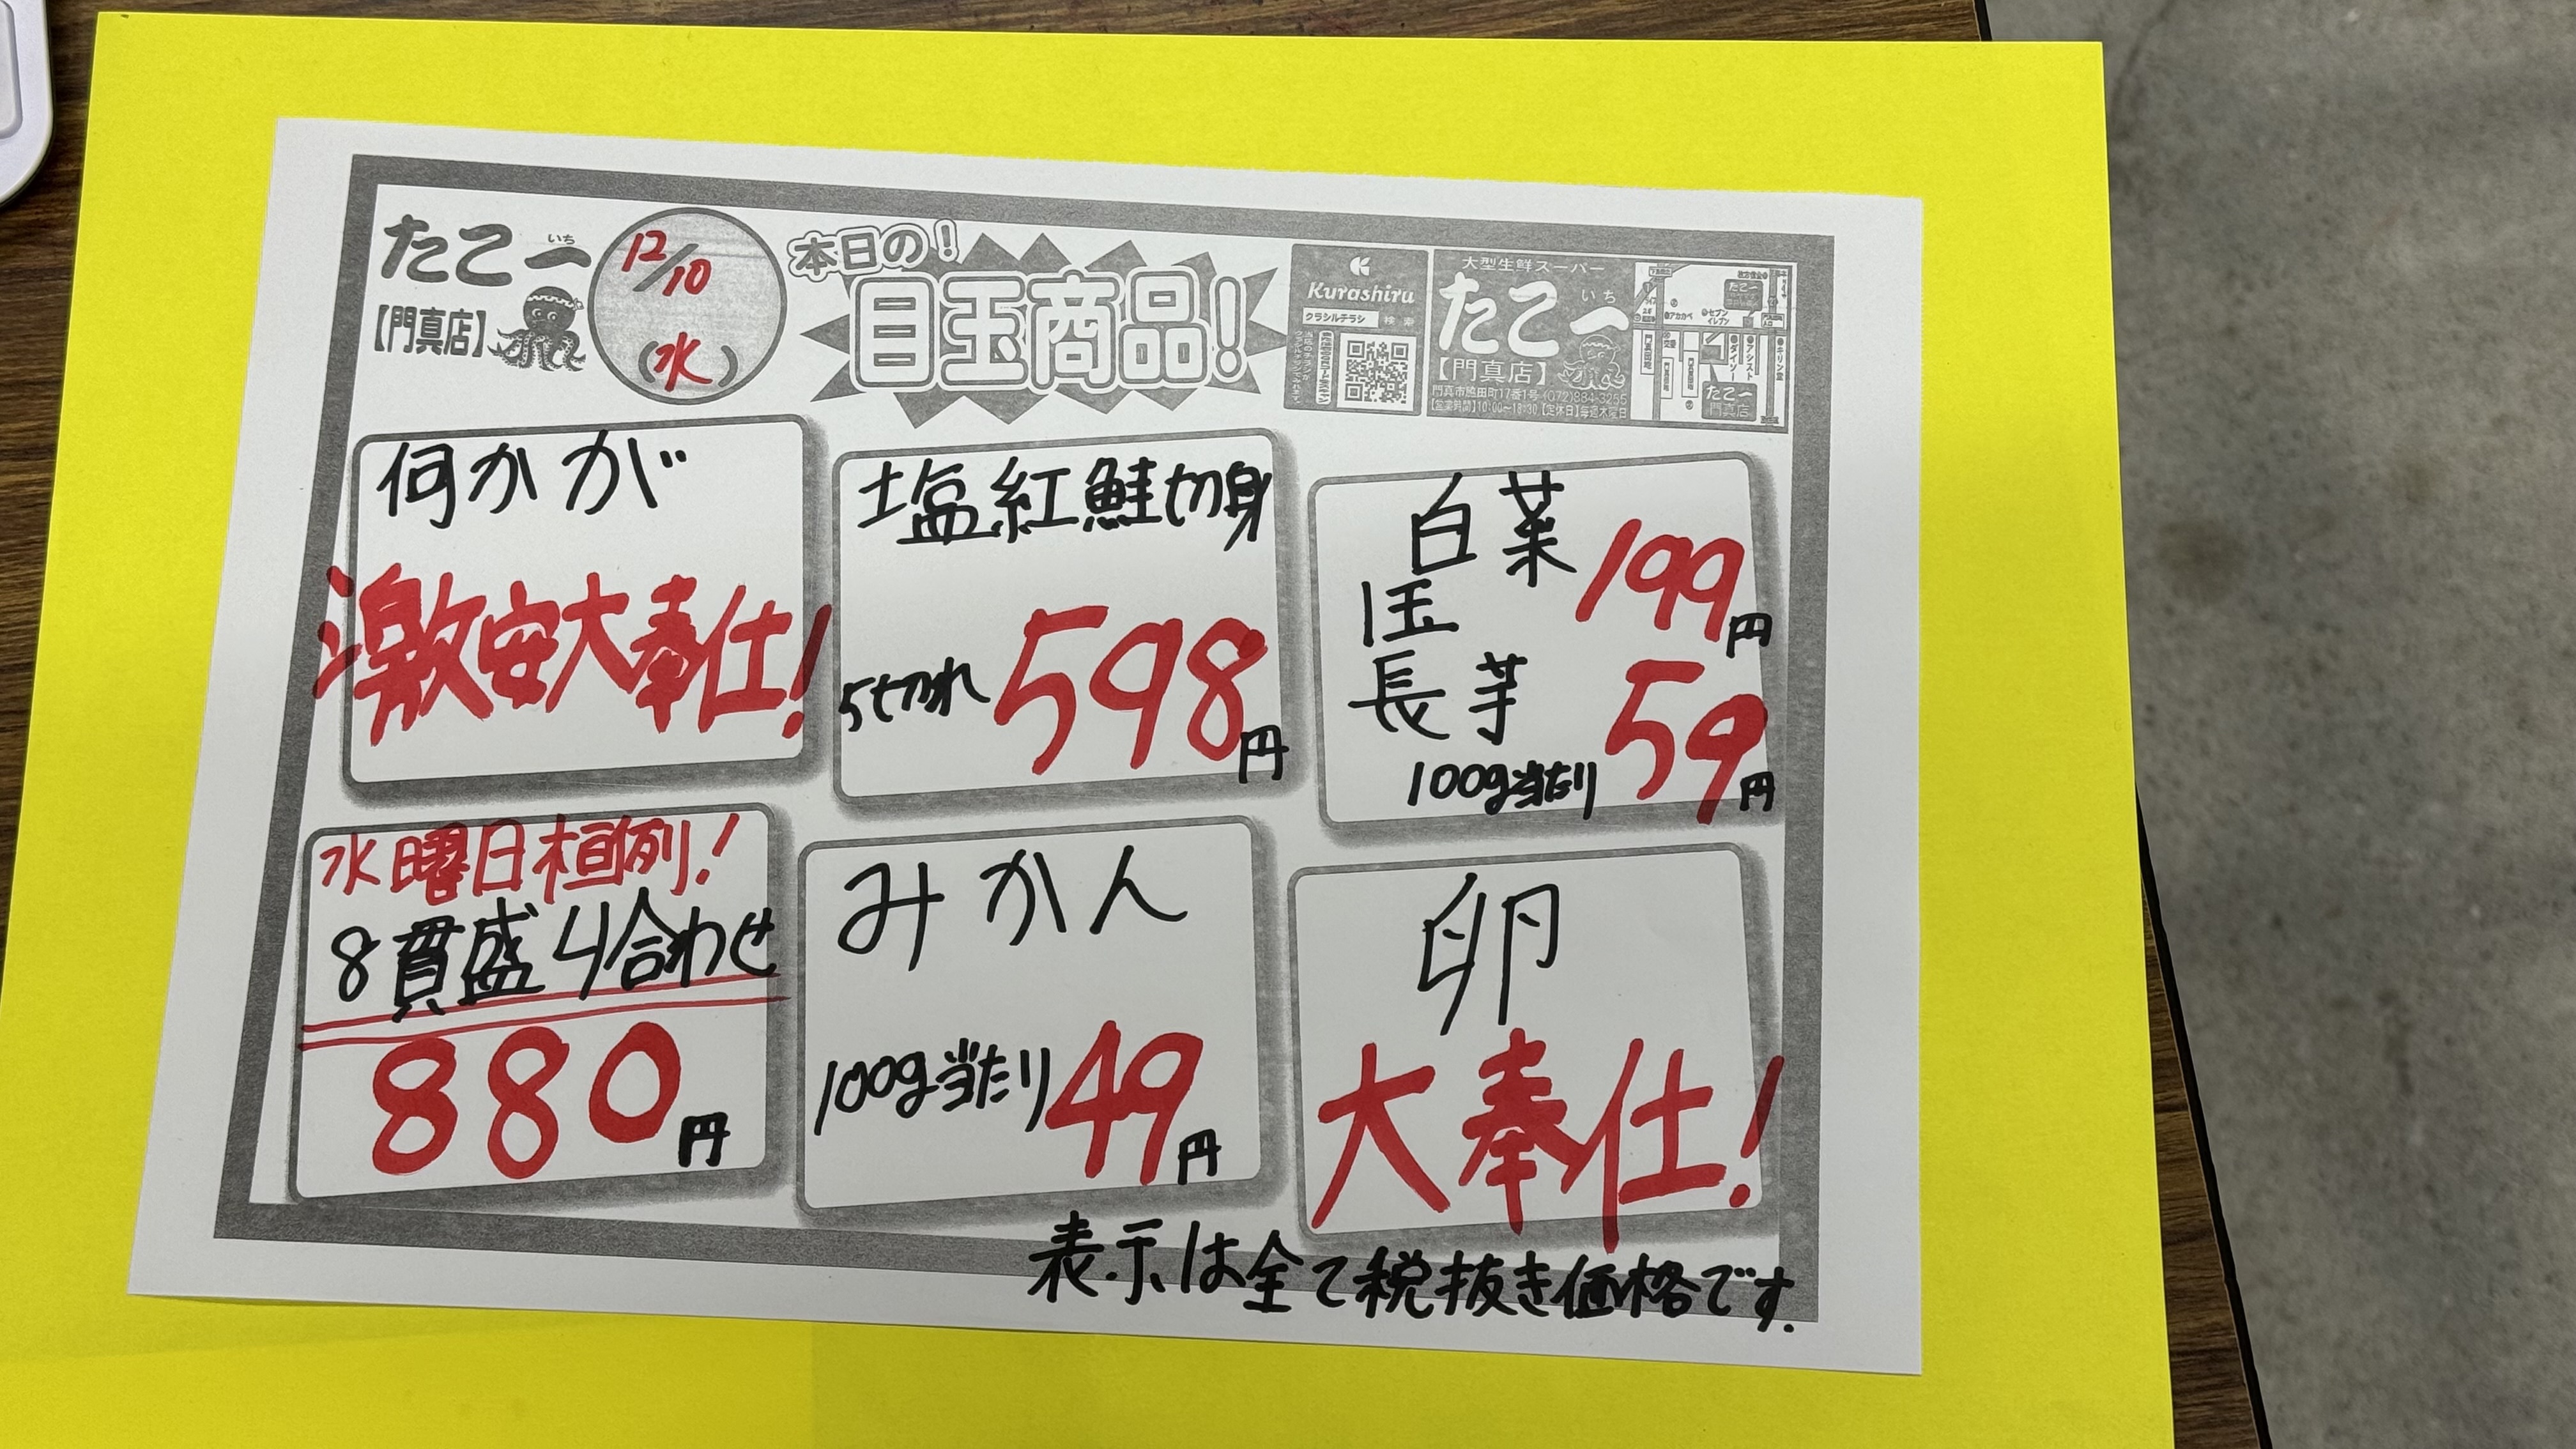 たこ一
いち
【門真店】
12/10
(水)
本日の！
目玉商品！
Kurashiru
クラシルチラシ 検索
大型生鮮スーパー
たこ一
いち
【門真店】
門真市脇田町17番1号 (072)884-3255
【営業時間】10:00～18:30【定休日】毎週木曜日
セブン
イレブン
アカカベ
ダイソー
アシスト
キリン堂
たこ一
門真店
何かが
激安大奉仕!
塩紅鮭切身
5切れ 598円
白菜
1玉 199円
長芋
100g当たり 59円
水曜日恒例!
8貫盛り合わせ
880円
みかん
100g当たり 49円
卵
大奉仕!
表示は全て税抜き価格です.